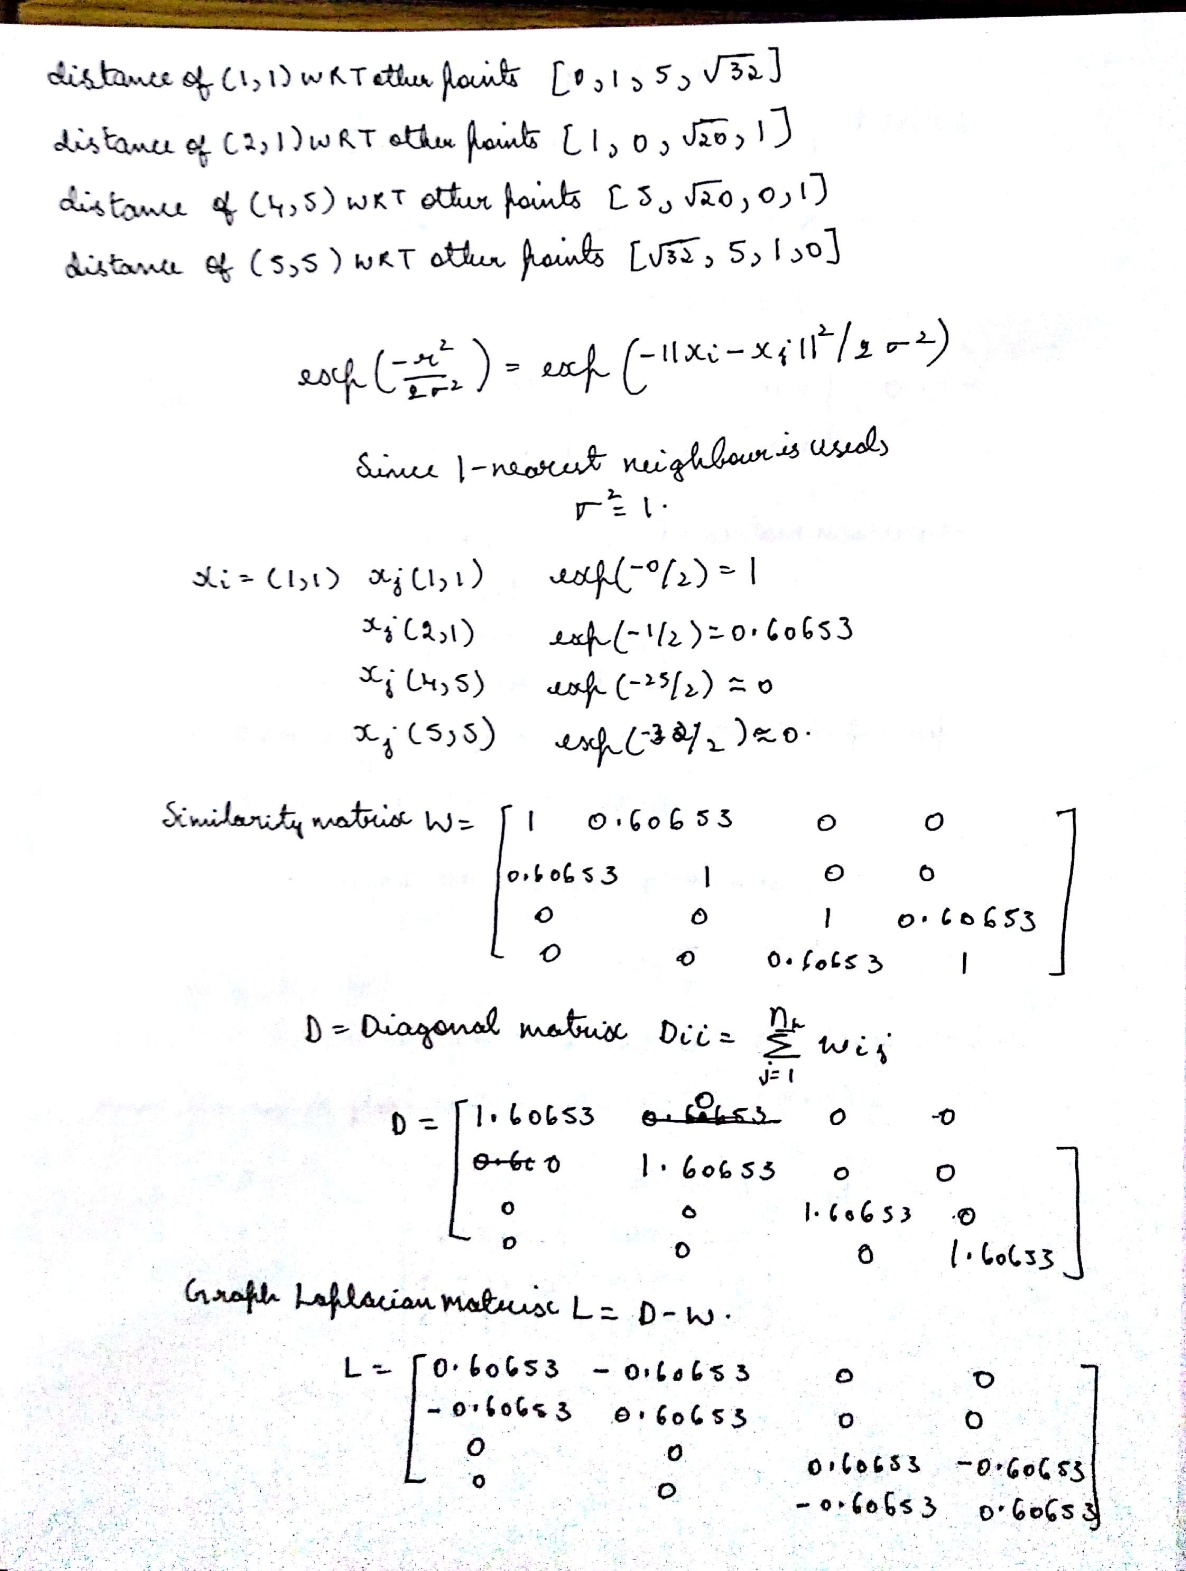 distance of (1,1) WRT other points [0,1,5,√32]
distance of (2,1) WRT other points [1,0,√20,1]
distance of (4,5) WRT other points [5,√20,0,1]
distance of (5,5) WRT other points [√32,5,1,0]
exp(-r²/2σ²) = exp(-||xi-xj||²/2σ²)
Since 1-nearest neighbour is used,
σ²=1.
xi = (1,1) xj(1,1) exp(-0/2)=1
xj(2,1) exp(-1/2)=0.60653
xj(4,5) exp(-25/2)≈0
xj(5,5) exp(-32/2)≈0.
Similarity matrix W= [1 0.60653 0 0
0.60653 1 0 0
0 0 1 0.60653
0 0 0.60653 1]
D = Diagonal matrix Dii = Σ wij
j=1
D = [1.60653 0 0 0
0 1.60653 0 0
0 0 1.60653 0
0 0 0 1.60653]
Graph Laplacian matrix L = D-W.
L = [0.60653 -0.60653 0 0
-0.60653 0.60653 0 0
0 0 0.60653 -0.60653
0 0 -0.60653 0.60653]